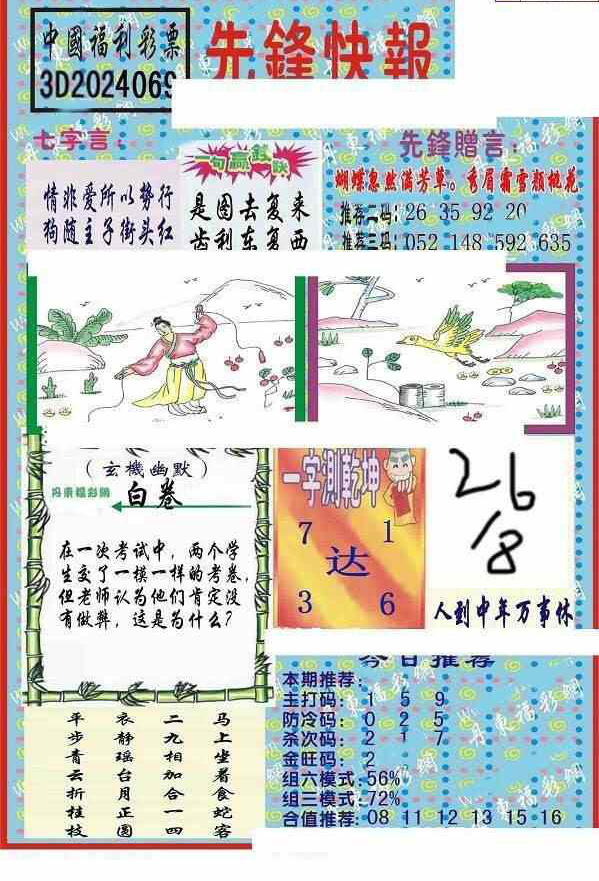 中國福利彩票
3D2024069
先鋒快報
七字言:
情非爱所以势行
狗随主子街头红
一句赢钱诀
是图去复来
齿利东复西
先鋒贈言:
蝴蝶忽然满芳草。秀眉霜雪颜桃花
推荐二码:26 35 92 20
推荐三码:052 148 592 635
(玄機幽默)
丹東福彩網
白卷
在一次考试中,两个学
生交了一模一样的考卷,
但老师认为他们肯定没
有做弊,这是为什么?
一字測乾坤
7 1
达
3 6
26
18
人到中年万事休
今日推荐
本期推荐:
主打码: 1 5 9
防冷码: 0 2 5
杀次码: 2 1 7
金旺码: 2
组六模式:56%
组三模式:72%
合值推荐:08 11 12 13 15 16
平步青云折桂枝
衣静瑶台月正圆
二九相加合一四
马上坐着食蛇客
丹東福彩網